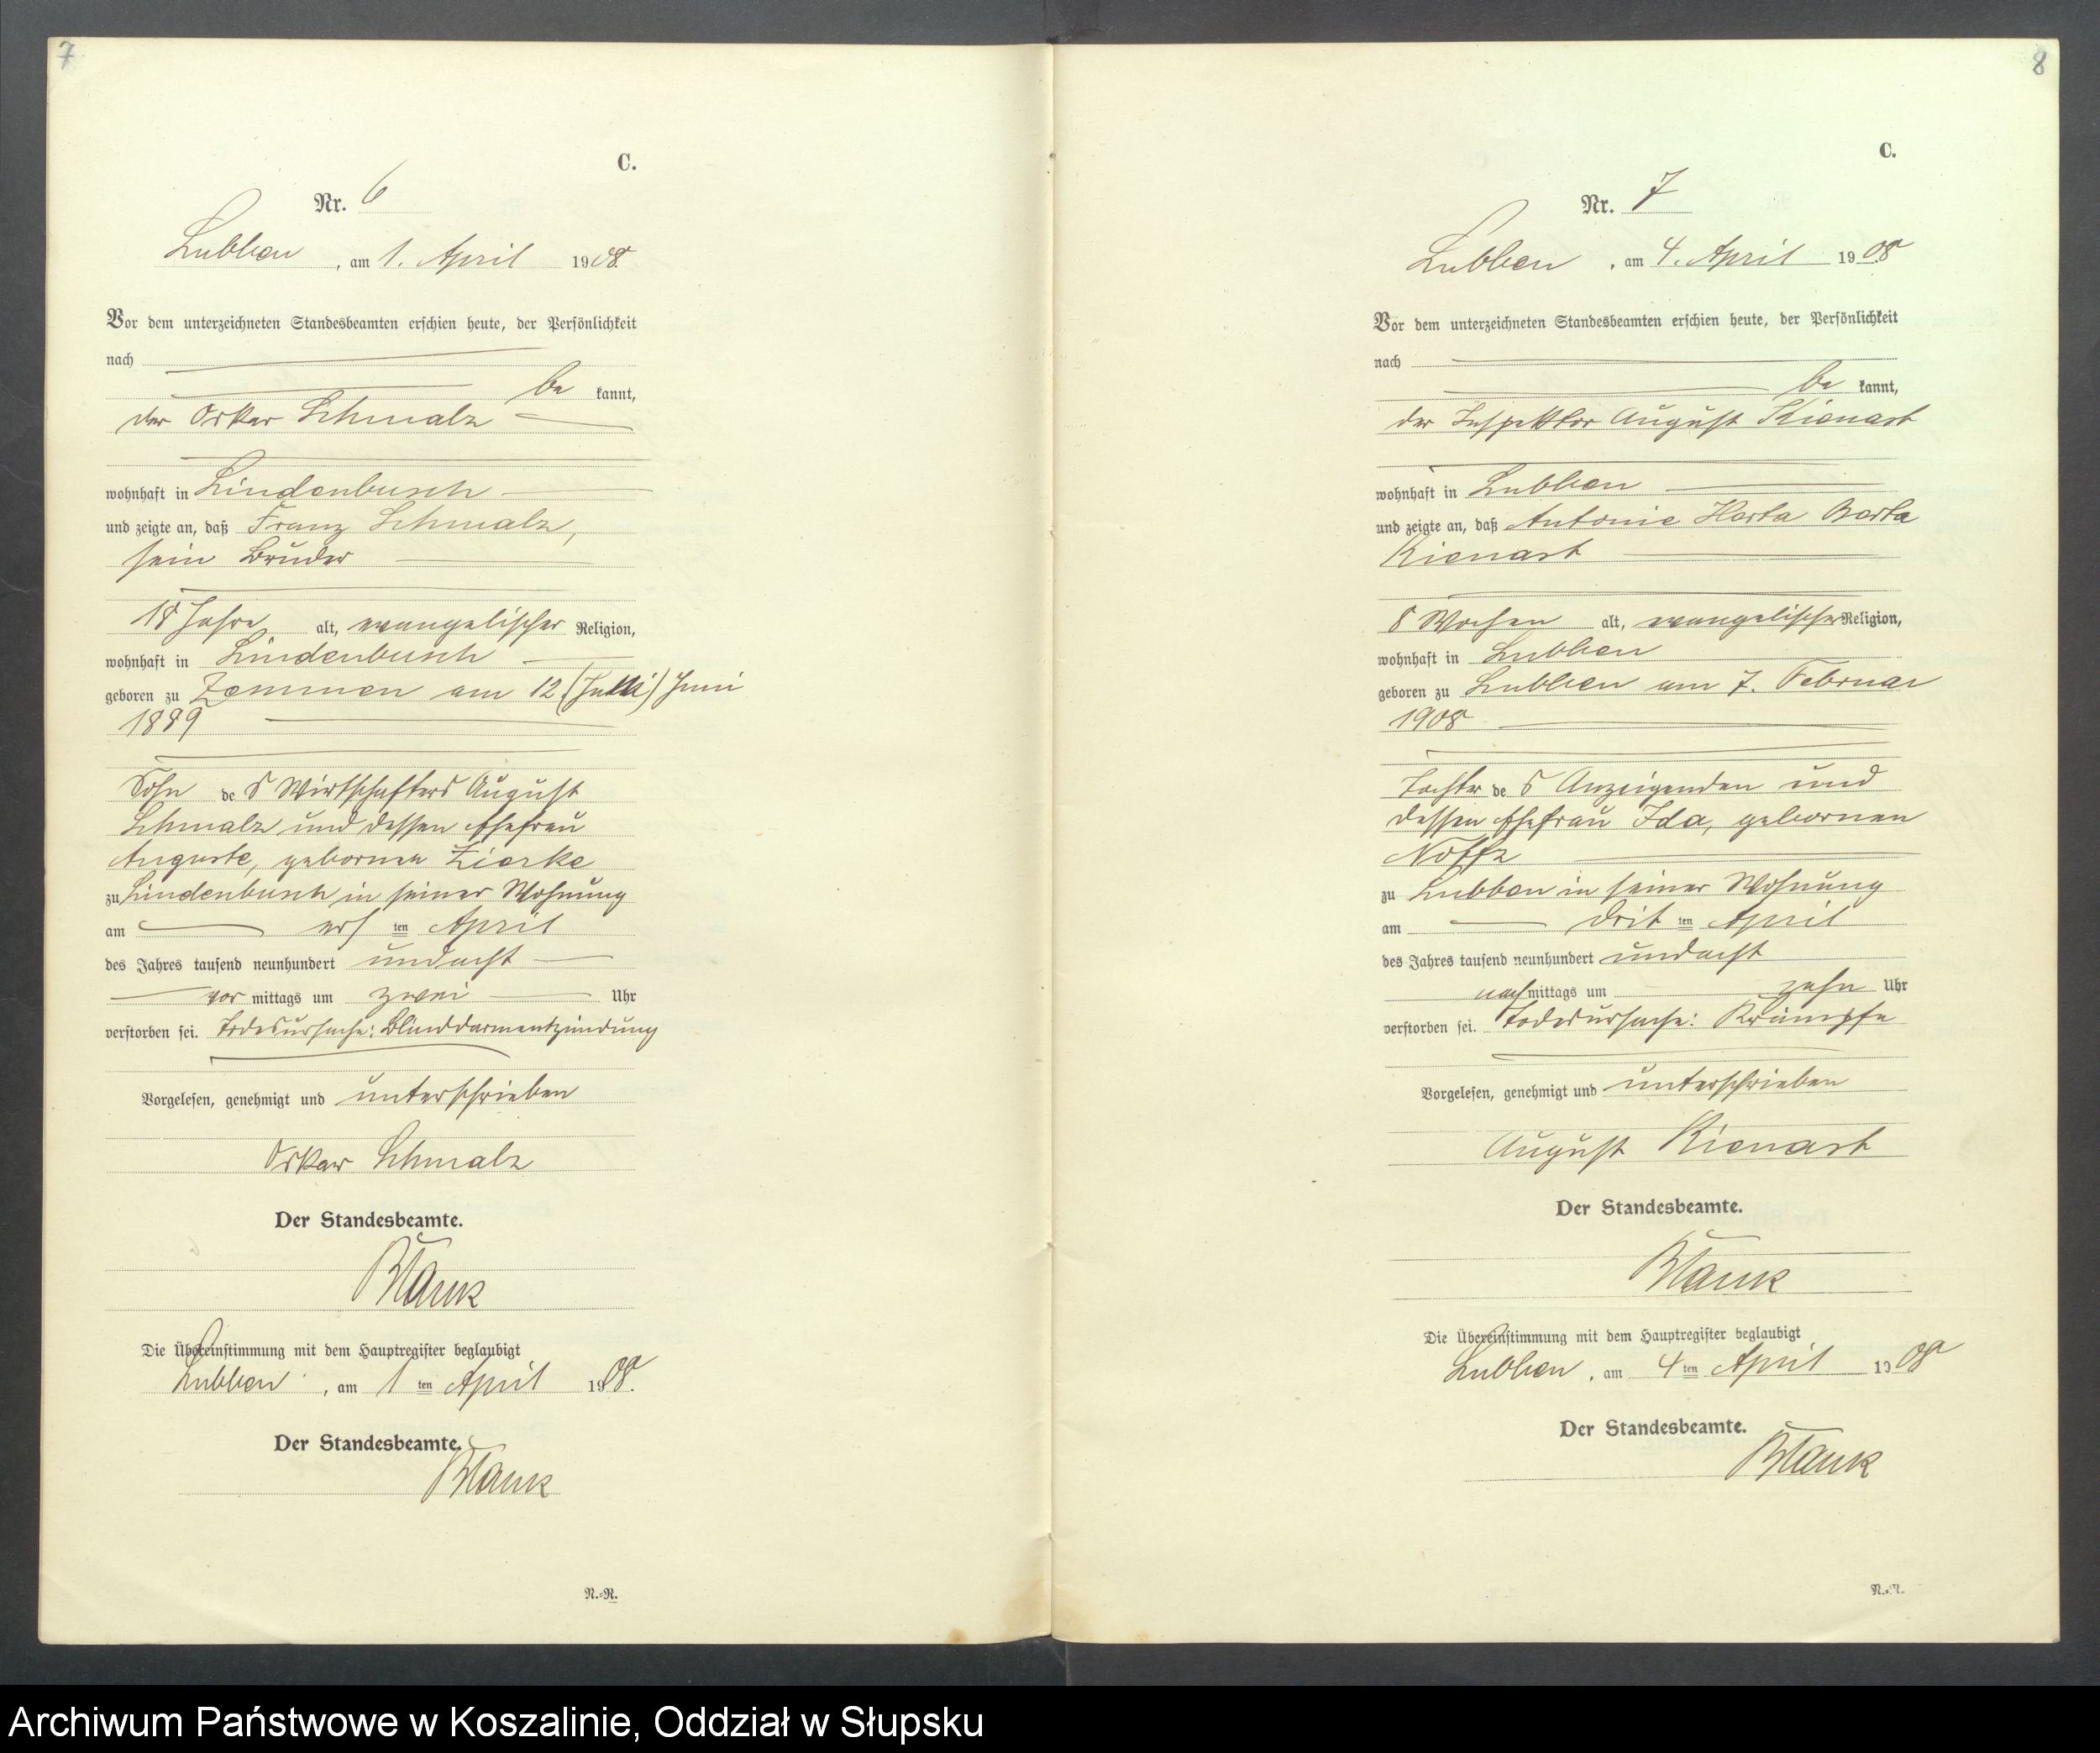 7
C.
Nr. 6
Lubben, am 1. April 1908.
Vor dem unterzeichneten Standesbeamten erschien heute, der Persönlichkeit
nach
be kannt,
der Oskar Schmalz
wohnhaft in Lindenbusch
und zeigte an, daß Franz Schmalz,
sein Bruder
18 Jahre alt, evangelischer Religion,
wohnhaft in Lindenbusch
geboren zu Zemmen am 12 (Juli) Juni
1889
Sohn des Wirtschafters August
Schmalz und dessen Ehefrau
Auguste, gebornen Zierke
zu Lindenbusch in seiner Wohnung
am ersten April
des Jahres tausend neunhundert undacht
vormittags um zwei Uhr
verstorben sei. Todesursache: Blinddarmentzündung
Vorgelesen, genehmigt und unterschrieben
Oskar Schmalz
Der Standesbeamte.
Blank
Die Übereinstimmung mit dem Hauptregister beglaubigt
Lubben, am 1 ten April 1908.
Der Standesbeamte.
Blank
N.=R.
8
C.
Nr. 7
Lubben, am 4. April 1908
Vor dem unterzeichneten Standesbeamten erschien heute, der Persönlichkeit
nach
be kannt,
der Inspektor August Kienast
wohnhaft in Lubben
und zeigte an, daß Antonie Herta Berta
Kienast
8 Wochen alt, evangelischer Religion,
wohnhaft in Lubben
geboren zu Lubben am 7. Februar
1908
Tochter des Anzeigenden und
dessen Ehefrau Ida, gebornen
zu Lubben in seiner Wohnung
am dritten April
des Jahres tausend neunhundert undacht
nachmittags um zehn Uhr
verstorben sei. Todesursache: Krämpfe
Vorgelesen, genehmigt und unterschrieben
August Kienast
Der Standesbeamte.
Blank
Die Übereinstimmung mit dem Hauptregister beglaubigt
Lubben, am 4 ten April 1908
Der Standesbeamte.
Blank
N.=R.
Archiwum Państwowe w Koszalinie, Oddział w Słupsku